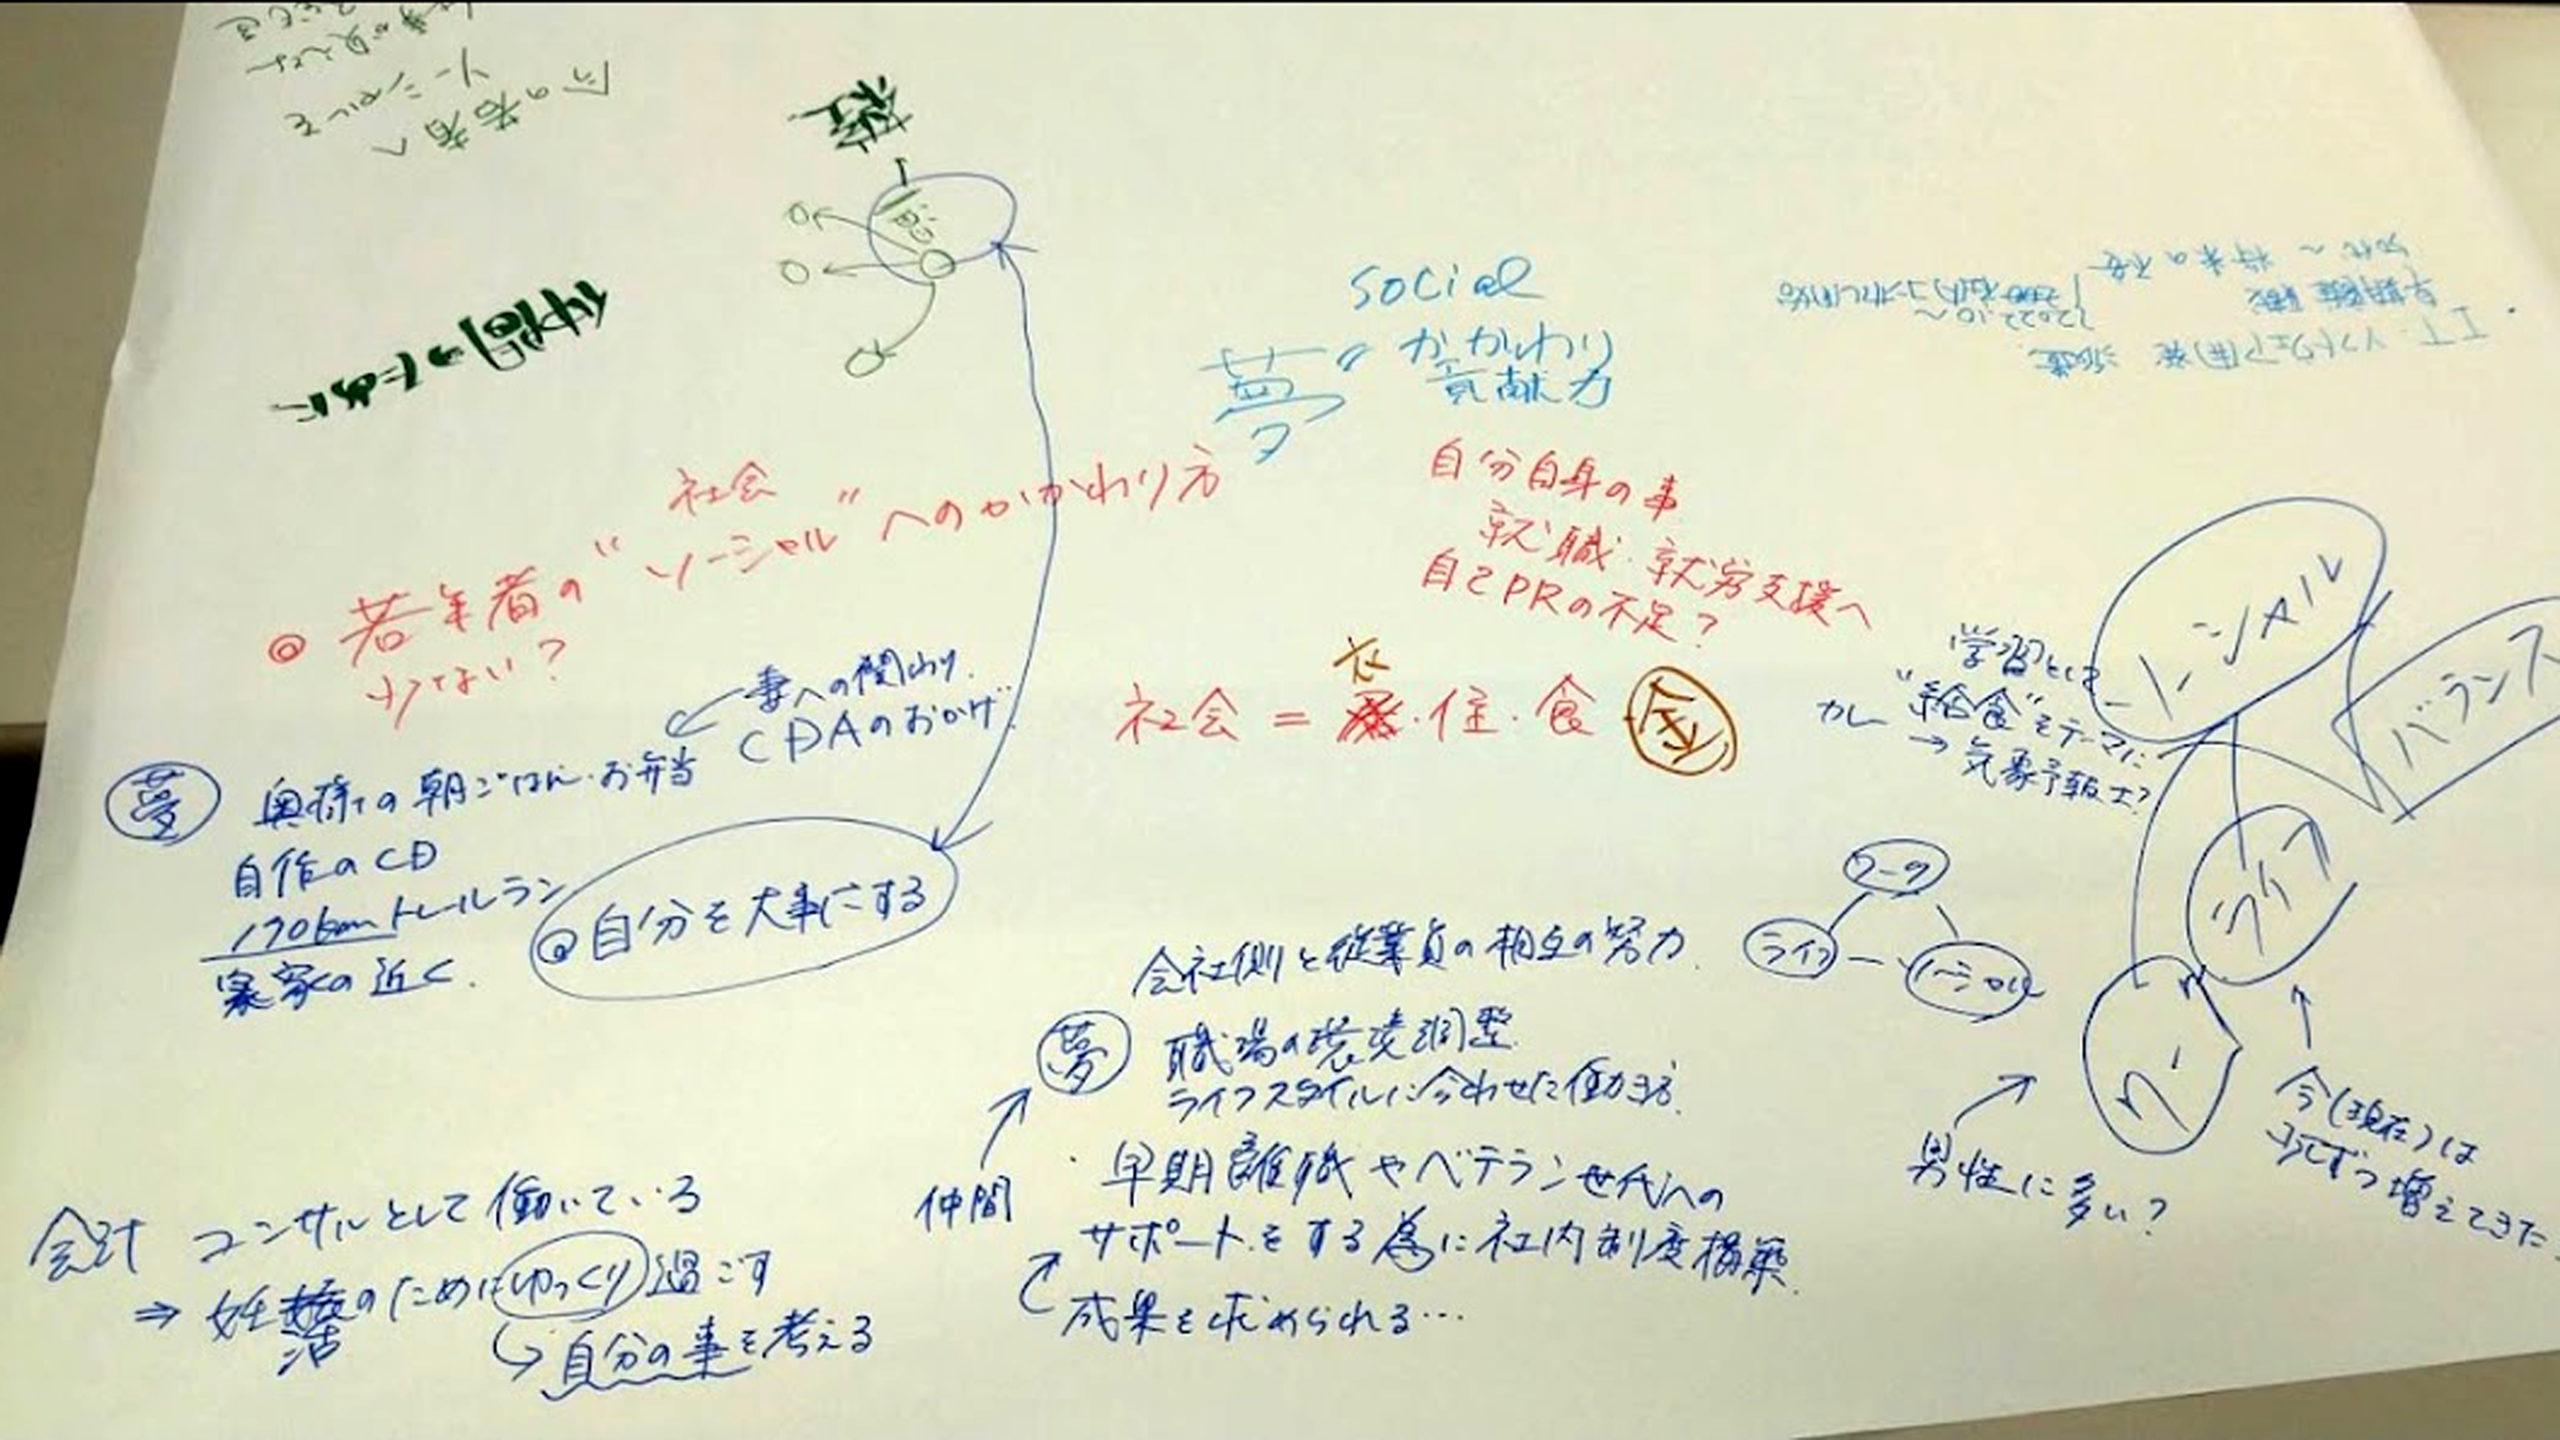 今の若者へ
ソーシャルを
仲間→
社会
自分
social
夢 " かかわり
貢献力
IT ソフトウェア開発
2022.10〜
50代〜 将来の不安
社会
◎ 若年者の "ソーシャル" へのかかわり方
少てない?
自分自身の事
就職・就労支援へ
自己PRの不足?
社会 = 衣・住・食 金
妻への関わり
CDAのおかげ
夢 奥様の朝ごはん・お弁当
自作のCD
170kmトレールラン
家の近く
◎自分を大事にする
学習として
カレー "給食"をテーマに
→気象予報士?
ソーシャル
バランス
ライフ
ワーク
ワーク
ライフ
ソーシャル
今(現在)は
増えてきた
男性に多い?
会社側と従業員の相互の努力
夢 職場の環境調整
ライフスタイルに合わせた働き方
仲間
・早期離職やベテラン世代への
サポートをする為に社内制度構築
成果を求められる…
会計 コンサルとして働いている
⇒ 妊活のためにゆっくり過ごす
自分の事を考える